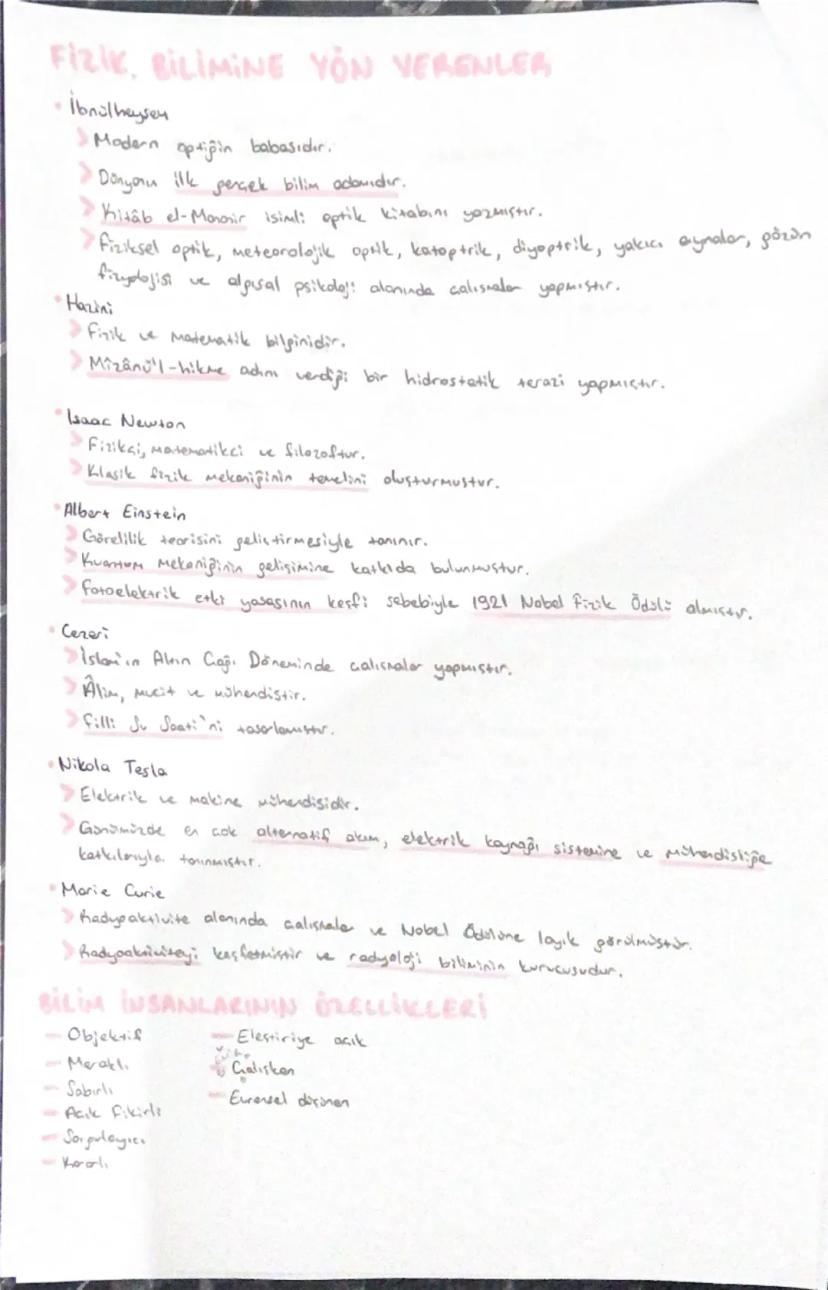 FİZİK BİLİMİNE YÖN VERENLER
• İbnülheysem
> Modern optiğin babasıdır.
> Dünyanın ilk gerçek bilim adamıdır.
> Kitâb el-Menazır isimli optik kitabını yazmıştır.
> Fiziksel optik, meteorolojik optik, katoptrik, diyoptrik, yakıcı aynalar, gözün
fizyolojisi ve algısal psikoloji alanında çalışmalar yapmıştır.
• Hazini
> Fizik ve Matematik bilginidir.
> Mîzânü'l-hikme adını verdiği bir hidrostatik terazi yapmıştır.
• Isaac Newton
> Fizikçi, matematikçi ve filozoftur.
> Klasik fizik mekaniğinin temelini oluşturmuştur.
• Albert Einstein
> Görelilik teorisini geliştirmesiyle tanınır.
> Kuantum mekaniğinin gelişimine katkıda bulunmuştur.
> Fotoelektrik etki yasasının keşfi sebebiyle 1921 Nobel Fizik Ödülü almıştır.
• Cezeri
> İslam'ın Altın Çağı Döneminde çalışmalar yapmıştır.
> Âlim, mucit ve mühendistir.
> Filli Su Saati'ni tasarlamıştır.
• Nikola Tesla
> Elektrik ve makine mühendisidir.
> Günümüzde en çok alternatif akım, elektrik kaynağı sistemine ve mühendisliğe
katkılarıyla tanınmıştır.
• Marie Curie
> Radyoaktivite alanında çalışmalar ve Nobel Ödülüne layık görülmüştür.
> Radyoaktiviteyi keşfetmiştir ve radyoloji biliminin kurucusudur.
BİLİM İNSANLARININ ÖZELLİKLERİ
— Objektif
— Meraklı
— Sabırlı
— Açık fikirli
— Sorgulayıcı
— Kararlı
— Eleştiriye açık
— Çalışkan
— Evrensel düşünen